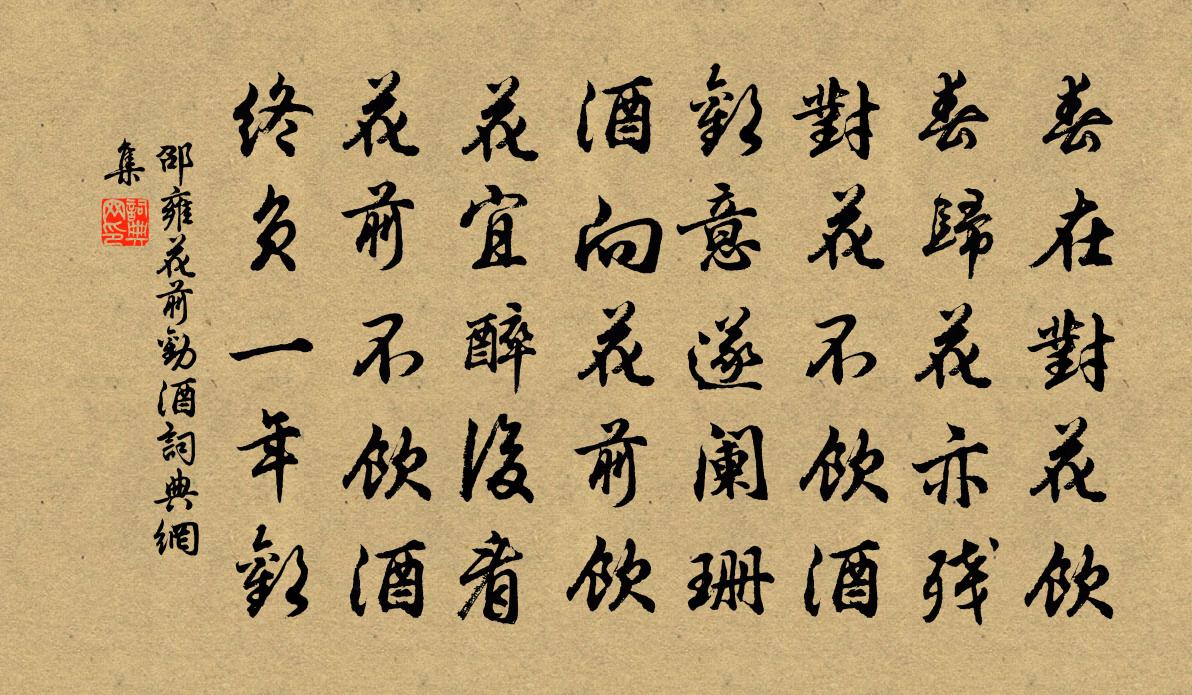 春在對花飲
春歸花亦残
對花不飲酒
歡意遂阑珊
酒向花前飲
花宜醉後看
花前不飲酒
終負一年歡
邵雍花前勸酒詞典網
集
詞典
网印